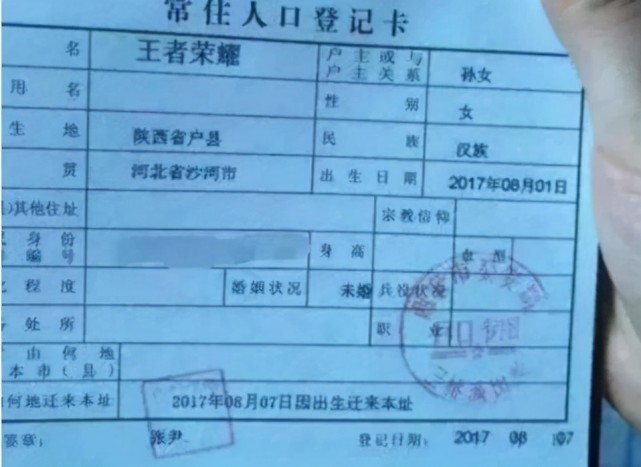 常住人口登记卡
名 王者荣耀 户主或与户主关系 孙女
用名 性别 女
生地 陕西省户县 民族 汉族
贯 河北省沙河市 出生日期 2017年08月01日
)其他住址 宗教信仰
身份 身高 血型
编号
程度 婚姻状况 未婚 兵役状况
处所 职业
由何地
本市(县)
何地迁来本址 2017年08月07日因出生迁来本址
签章: 张尹 登记日期: 2017 08 07